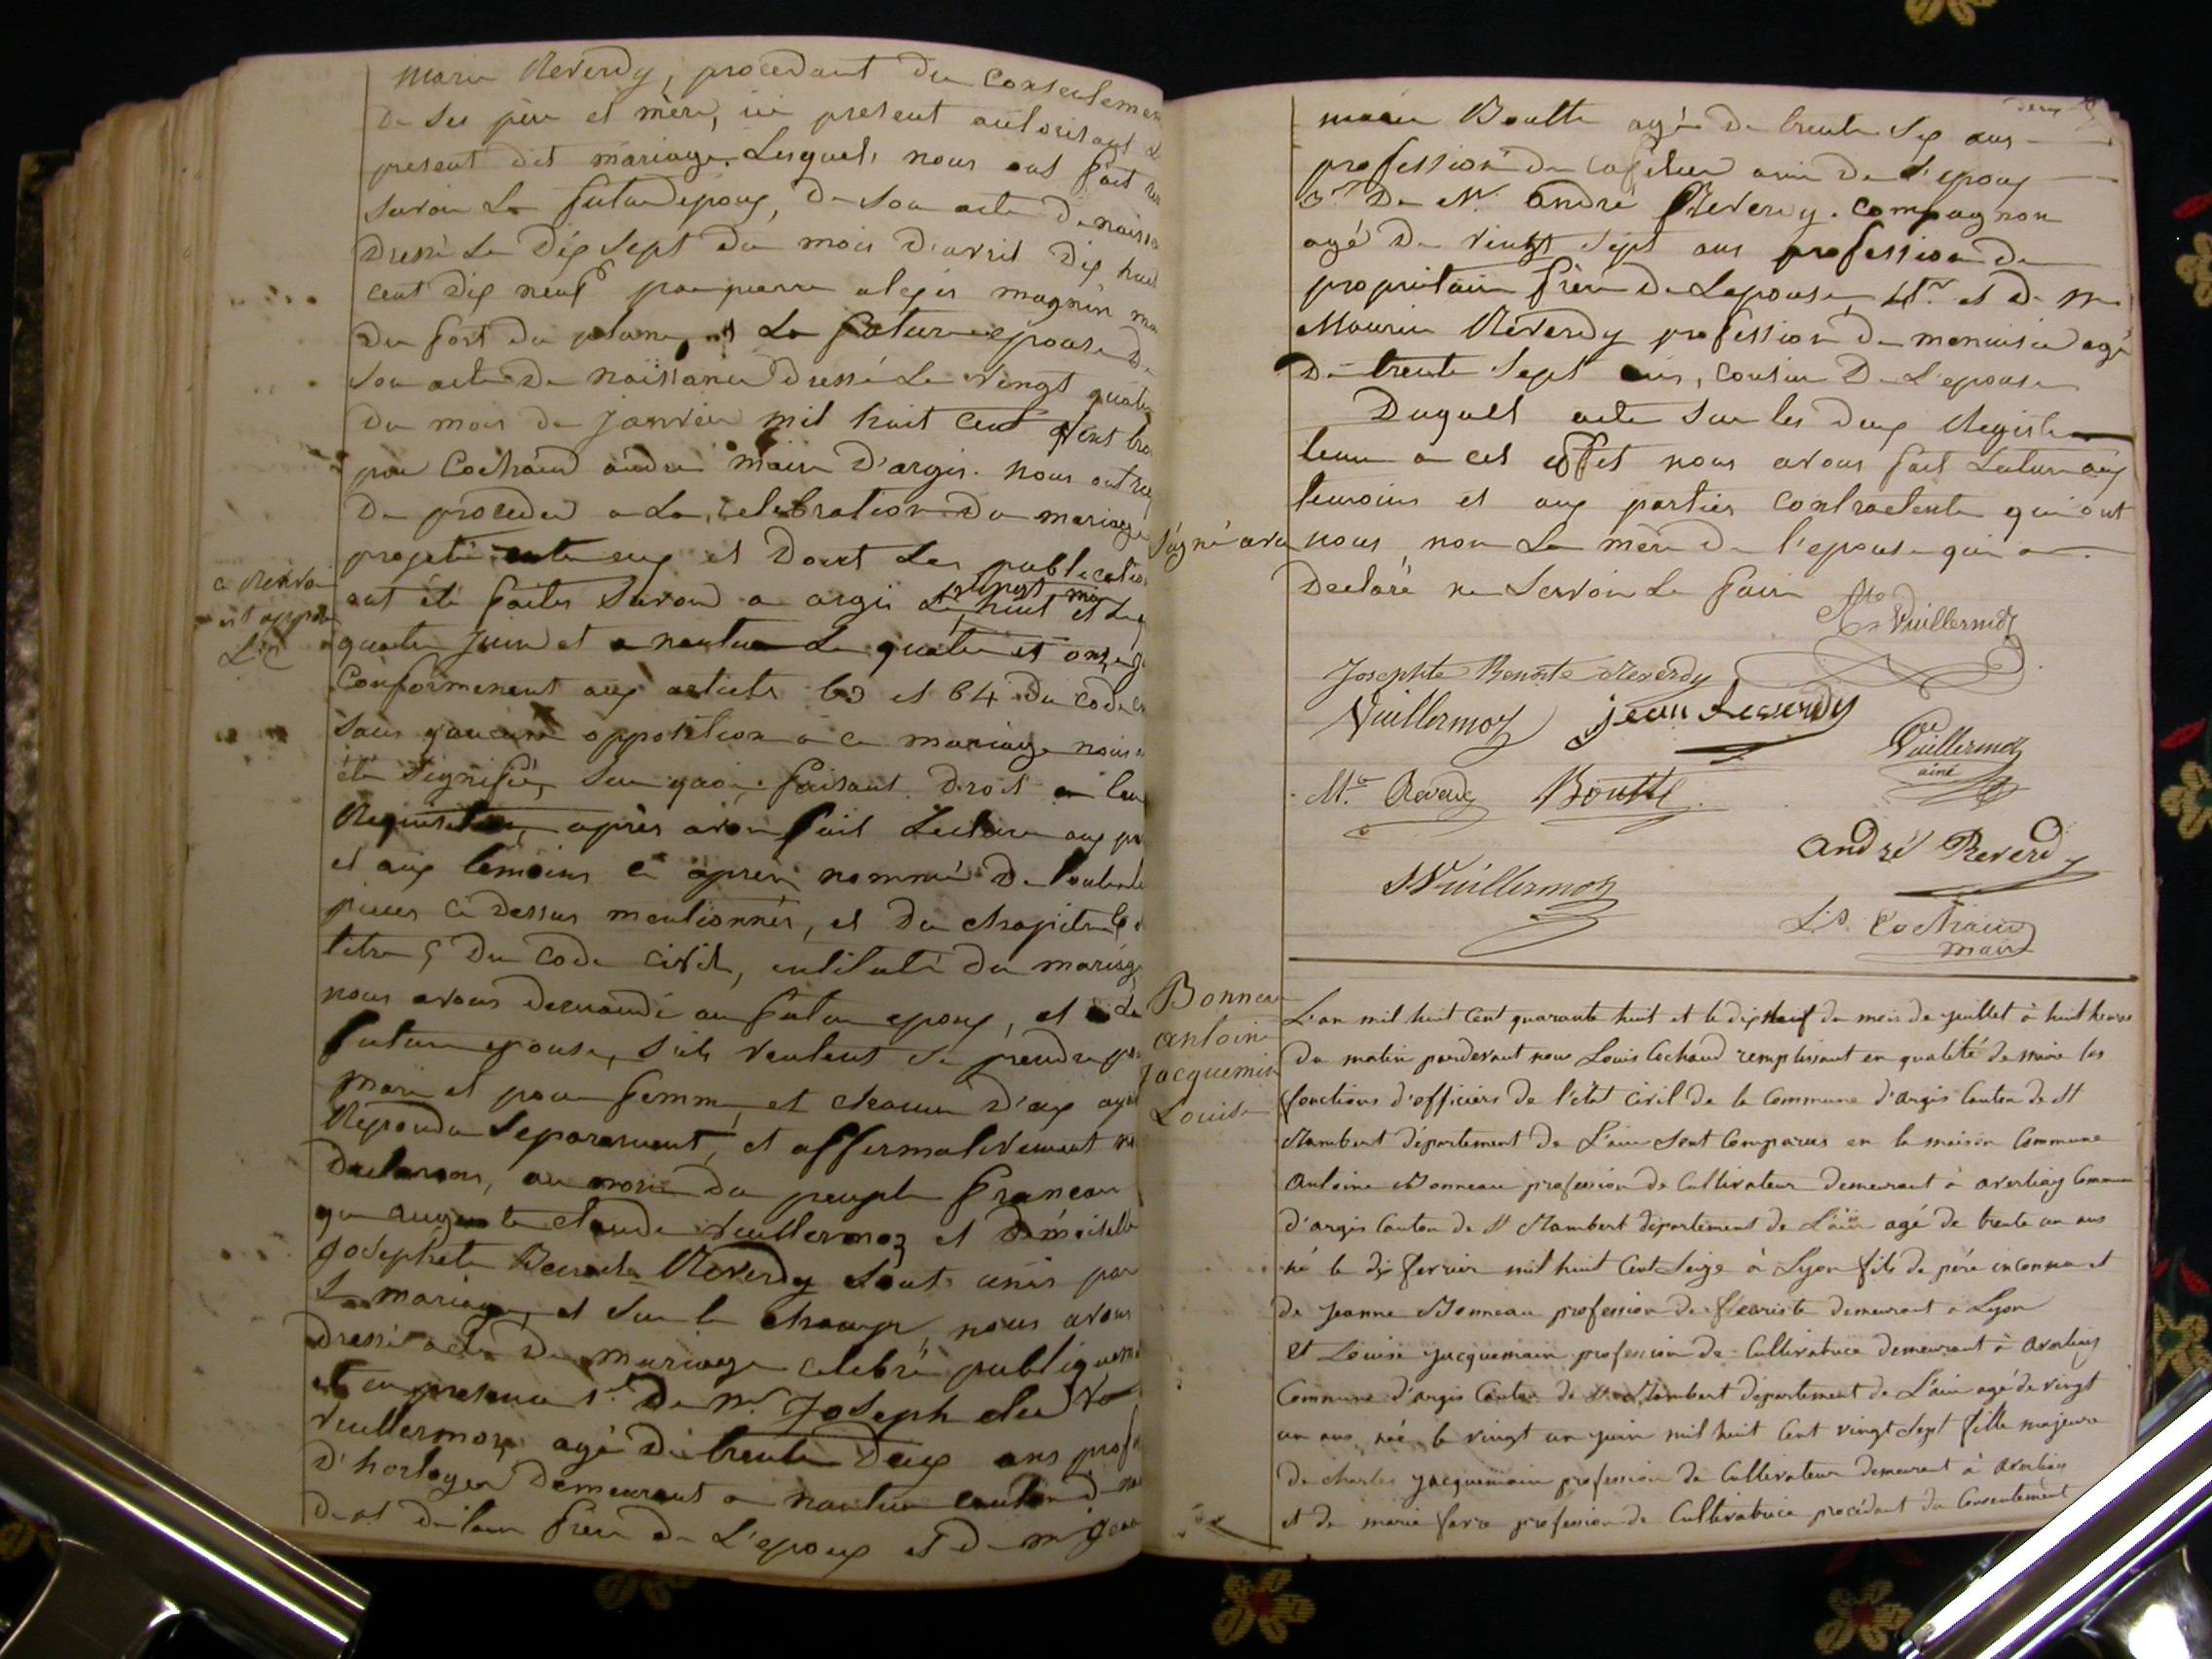 Marie Reverdy, procedant du Consentemen
De Ses père et mère, ici present autorisant Le
present dit mariage. Lesquels nous ont fait
savoir Le futur epoux, De Son acte De naissa
Dressé Le Dix Sept du mois D'avril Dix huit
cent Dix neuf par pierre magnin
du fort du plane et La future epouse De
Son acte De naissance Dressé Le Vingt quatre
Du mois De Janvier mil huit Cent Vint
par Cochaud andré Maire D'argis. nous ont
De proceder a La celebration Du mariage
projeté entre eux et Dont Les publication
ce Renvoi
est
L C
ont été faites Savoir a argis Le Vingt huit mai et Le
quatre Juin et a nantua Le quatre et onze
Conformement aux articles 63 et 64 du code
sans qaucune opposition a ce mariage nous
été Signifié, faisant Droit a leur
Requisition, après avoir fait Lecture aux
et aux temoins ci après nommé De toutes les
pieces ci Dessus mentionnés, et Du chapitre 6
titre 5 Du Code Civil, intitulé du mariage
nous avons demandé au futur epoux, et a La
future epouse, S'ils veulent Se prendre pour
Mari et pour femme, et chacun D'eux ayant
Repondu Separement, et affermativement
Declarons, au nom du peuple francau
que auguste claude Vuillermoz et Demoiselle
Josephte Benoite Reverdy Sont unis par
Le mariage, et Sur le Champ, nous avons
Dressé acte De mariage celebré publiquem
et en presence 1.er De Mr. Joseph
Vuillermoz agé De trente Deux ans prof
D'horloger Demeurant a nantua canton D
De l'ain frère De L'epoux et De m Jean
deux
marie Boutte agé De trente Six ans
profession De cafetier ami De L'epoux
3.t De Mr. andré Reverdy. Compagnon
agé De Vingt Sept ans profession De
propriétaire frère De Lepouse, 4t. et De Mr
Maurice Reverdy profession De menuisier agé
De trente Sept ans, cousin De L'epouse
Duquel acte Sur les Deux Registre
tenu a cet effet nous avons fait Lecture aux
temoins et aux parties Contractente qui ont
Signé avec nous, non La mère De l'epouse qui a
Declaré ne Savoir Le fair
Vuillermoz
Josephte Benoite Reverdy
Vuillermoz Jean Reverdy
Vuillermoz
ainé
M.ce Reverdy Boutte
André Reverdy
Vuillermoz
L.s Cochaud
maire
Bonneau
antoine
Jacquemin
Louise
L'an mil huit Cent quarante huit et le dix neuf du mois de juillet à huit heures
du matin pardevant nous Louis Cochaud remplissant en qualité de maire les
fonctions d'officiers de l'état Civil de la Commune d'argis Canton de St
Rambert département de L'ain Sont Comparus en la maison Commune
Antoine Bonneau profession de Cultivateur demeurant à averliaz Commune
d'argis Canton de St Rambert département de L'ain agé de trente un ans
né le dix fevrier mil huit Cent Seize à Lyon fils de père inconnu et
de Jeanne Bonneau profession de fleuriste demeurant à Lyon
et Louise Jacquemain profession de Cultivatrice demeurant à averliaz
Commune d'argis Canton de St Rambert département de L'ain agé de vingt
un ans née le vingt un juin mil huit Cent vingt Sept fille majeure
de Charles Jacquemain profession de Cultivateur demeurant à averliaz
et de marie favre profession de Cultivatrice procédant du Consentement